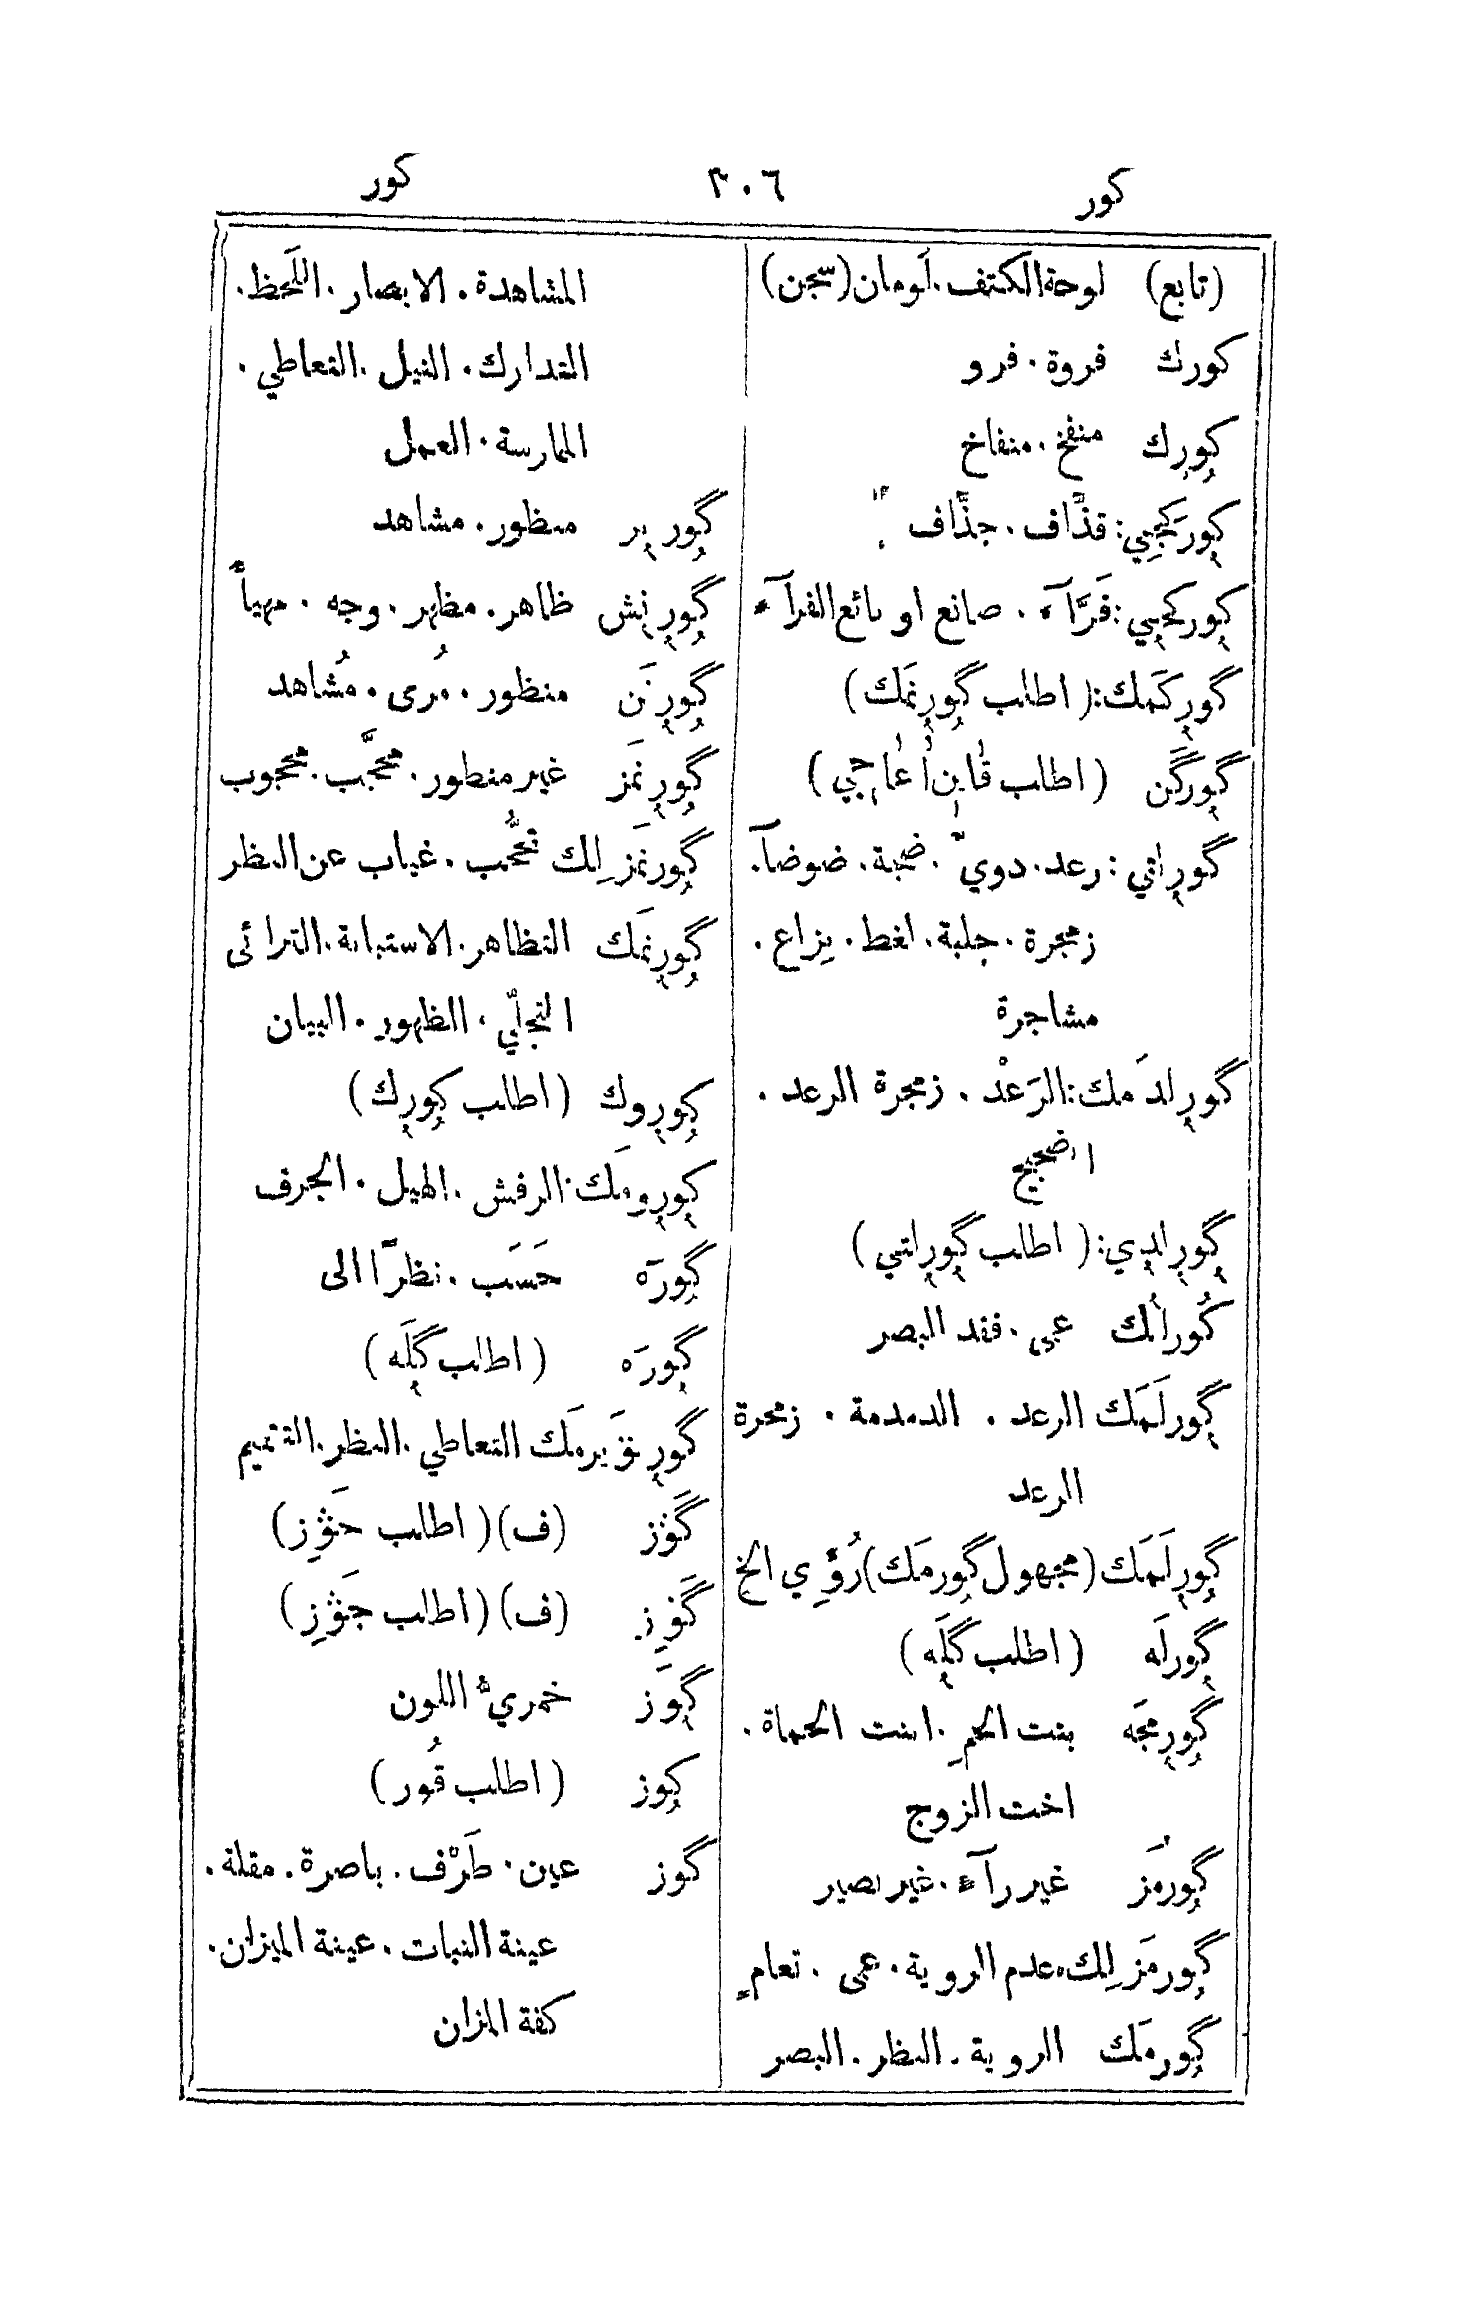 كور
٣٠٦
كور
(تابع) لوحة الكتف. لَومان (سجن)
كورك فروة. فرو
كورك منفخ. منفاخ
كورَكجي: قذَّاف. جذَّاف
كوركجي: فَرَّآء. صانع او بائع الفرآء
گورکَمك: (اطلب گورنمَك)
گورگَن (اطلب قاين اُغاجي)
گورلتي: رعد. دويّ. ضجة. ضوضآ.
زمجرة. جلبة. لغط. نِزاع.
مشاجرة
گورلدَمك: الرَعْد. زمجرة الرعد.
الضجيج
گورلدي: (اطلب گورلتي)
كُورلُك عمى. فقد البصر
گورلَمَك الرعد. الدمدمة. زمجرة
الرعد
گورلَمَك (مجهول گورمَك) رُؤِي الخ
گورلَه (اطلب گلَه)
گورمجَه بنت الحمِ. ابنت الحماة.
اخت الزوج
گورمَز غير رآء. غير بصير
گورمَزلِك. عدم الروية. عمى. تعامٍ
گورمَك الروية. النظر. البصر
المشاهدة. الابصار. اللَحظ.
التدارك. النيل. التعاطي.
الممارسة. العمل
گورير منظور. مشاهد
گورنِش ظاهر. مظهر. وجه. مهيأً
گورنَن منظور. مُرى. مُشاهد
گورنمَز غير منظور. محجَّب. محجوب
گورنمَزلِك تحجُّب. غياب عن النظر
گورنمَك التظاهر. الاستبانة. الترائى
التجلّي. الظهور. البيان
كوروك (اطلب كورك)
كورومَك. الرفش. الهيل. الجرف
گورَه حَسَب. نظرًا الى
گورَه (اطلب گلَه)
التعاطي. النظر. التتميم
گَوز (ف) (اطلب جَوِز)
(ف) (اطلب جَوِز)
گوَز خمريُّ اللون
كوز (اطلب قُور)
گوز عين. طَرْف. باصرة. مقلة.
عينة النبات. عينة الميزان.
كفة الميزان